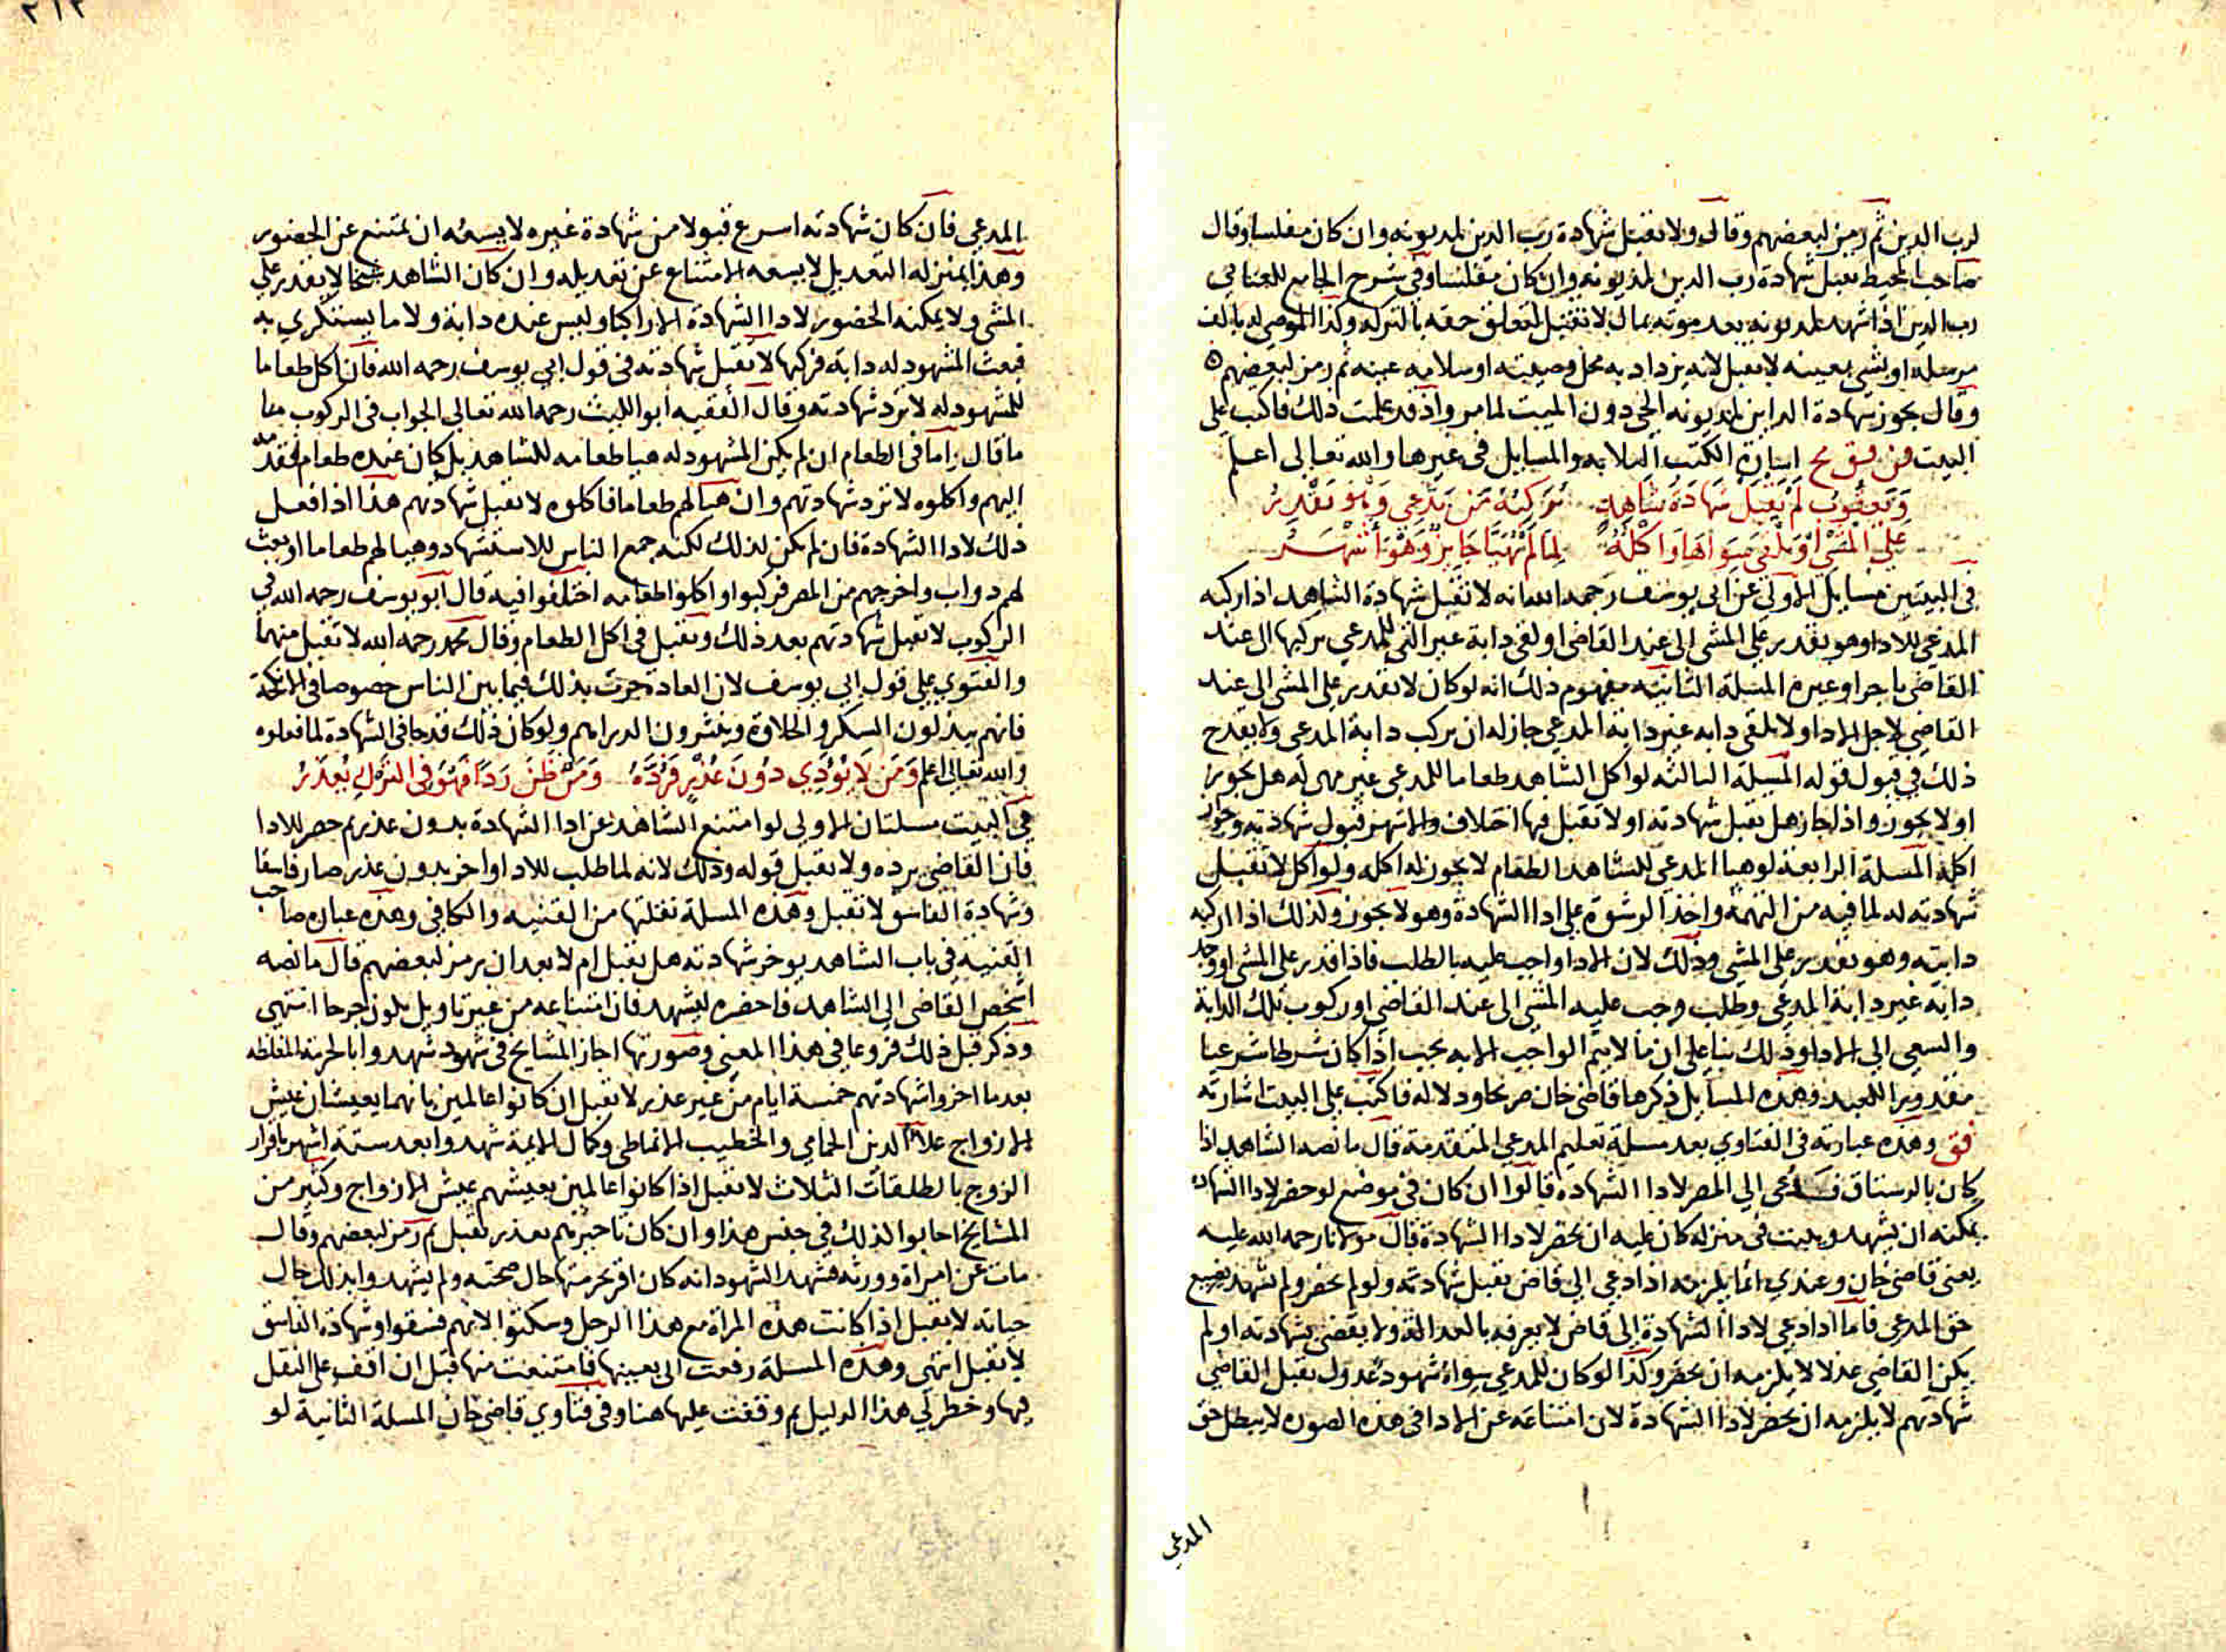 لرب الدين ثم رمز لبعضهم وقال ولا تقبل شهادة رب الدين لمديونه وان كان مفلسا وقال
صاحب المحيط تقبل شهادة رب الدين لمديونه وان كان مفلسا وفي شرح الجامع للعتابي
رب الدين اذا شهد لمديونه بعد موته بمال لا تقبل لتعلق حقه بالتركة وكذا الموصى له بالف
مرسلة او بشي بعينه لا تقبل لانه يزداد به محل وصيته او سلامة عينه ثم رمز لبعضهم
وقال تجوز شهادة الداين لمديونه الحي دون الميت لما مر واذ قد علمت ذلك فاكتب على
البيت فن فق مح اشارة الكتب الثلاثة والمسايل في غيرها والله تعالى اعلم
وَيَعقُوبُ لَم يَقبَل شَهَادَةَ شَاهِدٍ يُرَكِّبُهُ مَن يَدَّعِي وَهُوَ يَقدِرُ
عَلَى المَشي اَو يَلقَى سِوَاهَا وَاَكلُهُ لِمَا لَم يُهَيَّا جَايِزٌ وَهُوَ اَشهَرُ
في البيتين مسايل الاولى عن ابي يوسف رحمه الله انه لا تقبل شهادة الشاهد اذا ركبه
المدعي للادا وهو يقدر على المشي الى عند القاضي او لقي دابة غير التي للمدعي يركبها الى عند
القاضي باجر او غيره المسلة الثانية مفهوم ذلك انه لو كان لا يقدر على المشي الى عند
القاضي لاجل الادا ولا يلقى دابة غير دابة المدعي جاز له ان يركب دابة المدعي ولا يقدح
ذلك في قبول قوله المسيلة الثالثة لو اكل الشاهد طعاما للمدعي غير مهيء له هل يجوز
او لا يجوز واذا جاز هل تقبل شهادته او لا تقبل فيها اختلاف والاشهر قبول شهادته وجواز
اكله المسلة الرابعة لو هيا المدعي للشاهد الطعام لا يجوز له اكله ولو اكل لا تقبل
شهادته له لما فيه من التهمة واخذ الرشوة على ادا الشهادة وهو لا يجوز وكذلك اذا اركبه
دابته وهو يقدر على المشي وذلك لان الادا واجب عليه بالطلب فاذا قدر على المشي او وجد
دابة غير دابة المدعي وطلب وجب عليه المشي الى عند القاضي او ركوب تلك الدابة
والسعي الى الادا وذلك بنا على ان ما لا يتم الواجب الا به يجب اذا كان شرطا شرعيا
مقدورا للعبد وهذه المسايل ذكرها قاضي خان صريحا ودلالة فاكتب على البيت اشارته
فق وهذه عبارته في الفتاوي بعد مسلة تعليم المدعي المتقدمة قال ما نصه الشاهد اذا
كان بالرستاق فدعي الى المصر لادا الشهادة قالوا ان كان في موضع لو حضر لادا الشهادة
يمكنه ان يشهد ويبيت في منزله كان عليه ان يحضر لادا الشهادة قال مولانا رحمة الله عليه
يعني قاضي خان وعندي انما يلزمه اذا دعي الى قاض تقبل شهادته ولو لم يحضر ولم يشهد يضيع
حق المدعي فاما اذا دعي لادا الشهادة الى قاض لا يعرفه بالعدالة ولا يقضي بشهادته او لم
يكن القاضي عدلا لا يلزمه ان يحضر وكذا لو كان للمدعي سواه شهود عدول تقبل القاضي
شهادتهم لا يلزمه ان يحضر لادا الشهادة لان امتناعه عن الادا في هذه الصورة لا يبطل حق
المدعي
٢١٢
المدعي فان كان شهادته اسرع قبولا من شهادة غيره لا يسعه ان يمتنع عن الحضور
وهذا بمنزلة التعديل لا يسعه الامتناع عن تعديله وان كان الشاهد شيخا لا يقدر على
المشي ولا يمكنه الحضور لادا الشهادة الا راكبا وليس عنده دابة ولا ما يستكري به
فبعث المشهود له دابة فركبها لا تقبل شهادته في قول ابي يوسف رحمه الله فان اكل طعاما
للمشهود له لا ترد شهادته وقال الفقيه ابو الليث رحمه الله تعالى الجواب في الركوب ما
ما قال اما في الطعام ان لم يكن المشهود له هيا طعامه للشاهد بل كان عنده طعام فقدمه
اليهم واكلوه لا ترد شهادتهم وان هيا لهم طعاما فاكلوه لا تقبل شهادتهم هذا اذا فعل
ذلك لادا الشهادة فان لم يكن لذلك لكنه جمع الناس للاستشهاد وهيا لهم طعاما او بعث
لهم دواب واخرجهم من المصر فركبوا واكلوا طعامه اختلفوا فيه قال ابو يوسف رحمه الله في
الركوب لا تقبل شهادتهم بعد ذلك وتقبل في اكل الطعام وقال محمد رحمه الله لا تقبل منهما
والفتوى على قول ابي يوسف لان العادة جرت بذلك فيما بين الناس خصوصا في الانكحة
فانهم يبذلون السكر والحلاوة وينثرون الدراهم ولو كان ذلك قدحا في الشهادة لما فعلوه
والله تعالى اعلم وَمَن لَا يُؤَدِّي دُونَ عُذرٍ فَرُدَّهُ وَمَن ظَنَّ رَدًّا فَهُوَ فِي التَّركِ يُعذَرُ
في البيت مسلتان الاولى لو امتنع الشاهد عن ادا الشهادة بدون عذر ثم حضر للادا
فان القاضي يرده ولا يقبل قوله وذلك لانه لما طلب للادا واخر بدون عذر صار فاسقا
وشهادة الفاسق لا تقبل وهذه المسلة نقلتها من القنية والكافي وهذه عبارة صاحب
القنية في باب الشاهد يوخر شهادته هل تقبل ام لا بعد ان رمز لبعضهم قال ما نصه
اشخص القاضي الى الشاهد فاحضره ليشهد فان امتناعه من غير تاويل يكون جرحا انتهى
وذكر قبل ذلك فروعا في هذا المعنى وصورتها اجاز المشايخ في شهود شهدوا بالحرمة المغلظة
بعد ما اخروا شهادتهم خمسة ايام من غير عذر لا تقبل ان كانوا عالمين بانهما يعيشان عيش
الازواج علا الدين الحمامي والخطيب الانماطي وكمال الايمة شهدوا بعد ستة اشهر باقرار
الزوج بالطلقات الثلاث لا تقبل اذا كانوا عالمين بعيشهم عيش الازواج وكثير من
المشايخ اجابوا لذلك في جنس هذا وان كان تاخيرهم بعذر تقبل ثم رمز لبعضهم وقال
مات عن امراة وورثة فشهد الشهود انه كان اقر بحرمتها حال صحته ولم يشهدوا بذلك حال
حياته لا تقبل اذا كانت هذه المراة مع هذا الرجل وسكتوا لانهم فسقوا وشهادة الفاسق
لا تقبل انتهى وهذه المسلة رفعت الي بعينها فامتنعت منها قبل ان اقف على النقل
فيها وخطر لي هذا الدليل ثم وقفت عليها هنا وفي فتاوي قاضي خان المسلة الثانية لو